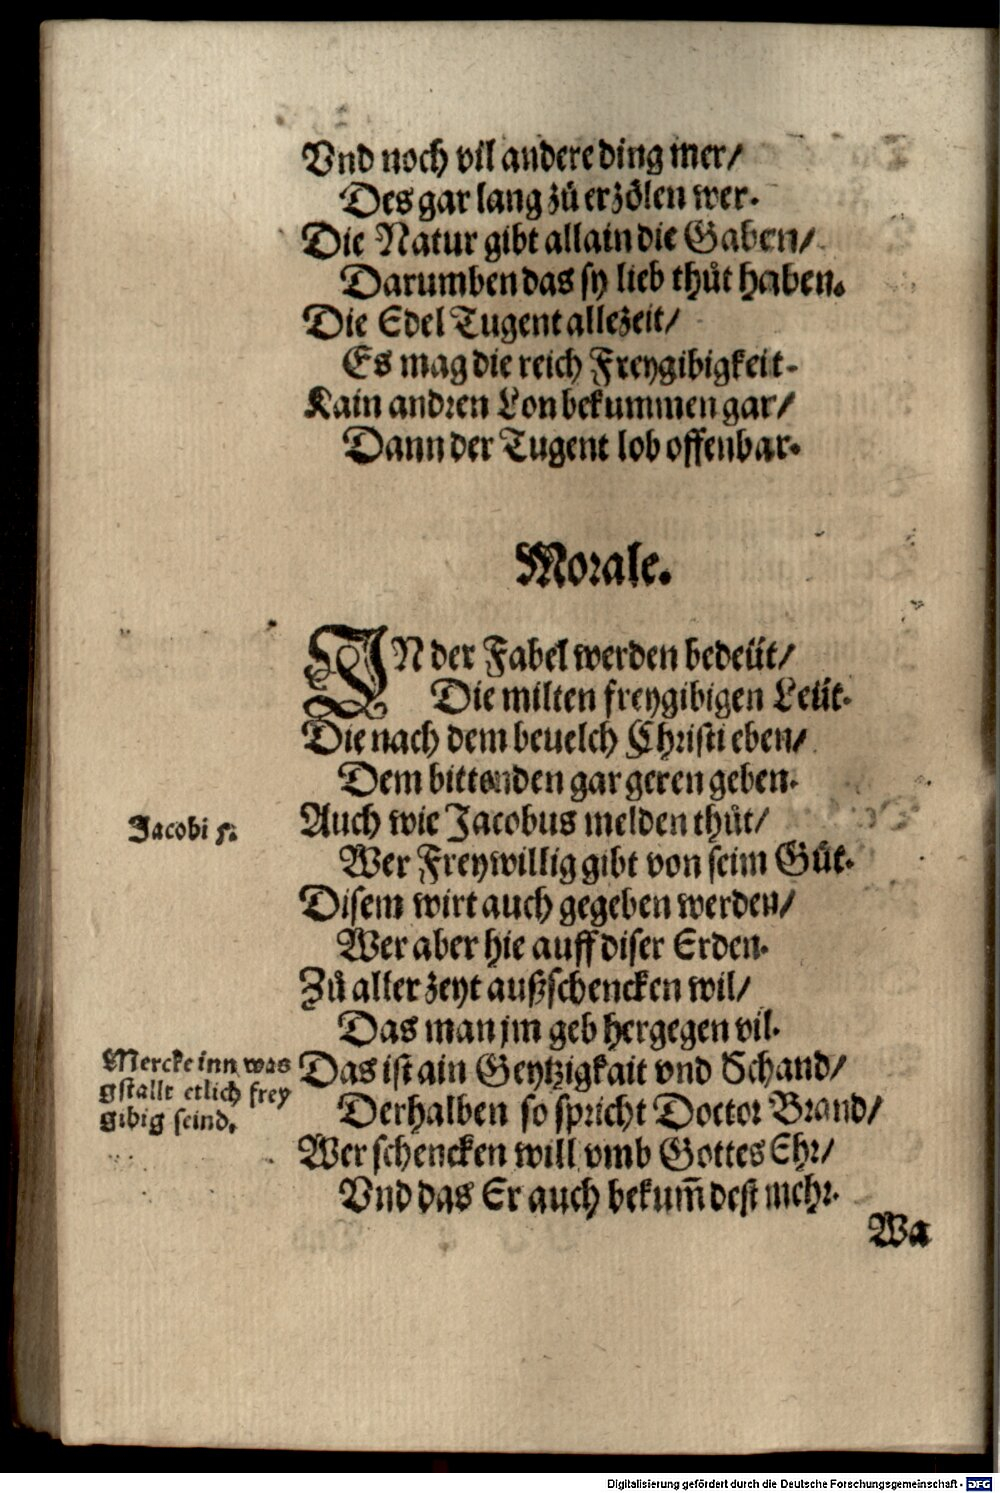 Vnd noch vil andere ding mer/
Des gar lang zů erzölen wer.
Die Natur gibt allain die Gaben/
Darumben das sy lieb thůt haben.
Die Edel Tugent allezeit/
Es mag die reich Freygibigkeit.
Kain andren Lon bekummen gar/
Dann der Tugent lob offenbar.
Morale.
IN der Fabel werden bedeüt/
Die milten freygibigen Leüt.
Die nach dem beuelch Christi eben/
Dem bittenden gar geren geben.
Jacobi 5.
Auch wie Jacobus melden thůt/
Wer Freywillig gibt von seim Gůt.
Disem wirt auch gegeben werden/
Wer aber hie auff diser Erden.
Zů aller zeyt außschencken wil/
Das man jm geb hergegen vil.
Mercke inn was
gstallt etlich frey
gibig seind.
Das ist ain Geytzigkait vnd Schand/
Derhalben so spricht Doctor Brand/
Wer schencken will vmb Gottes Ehr/
Vnd das Er auch bekum̃ dest mehr.
Wa
Digitalisierung gefördert durch die Deutsche Forschungsgemeinschaft - DFG